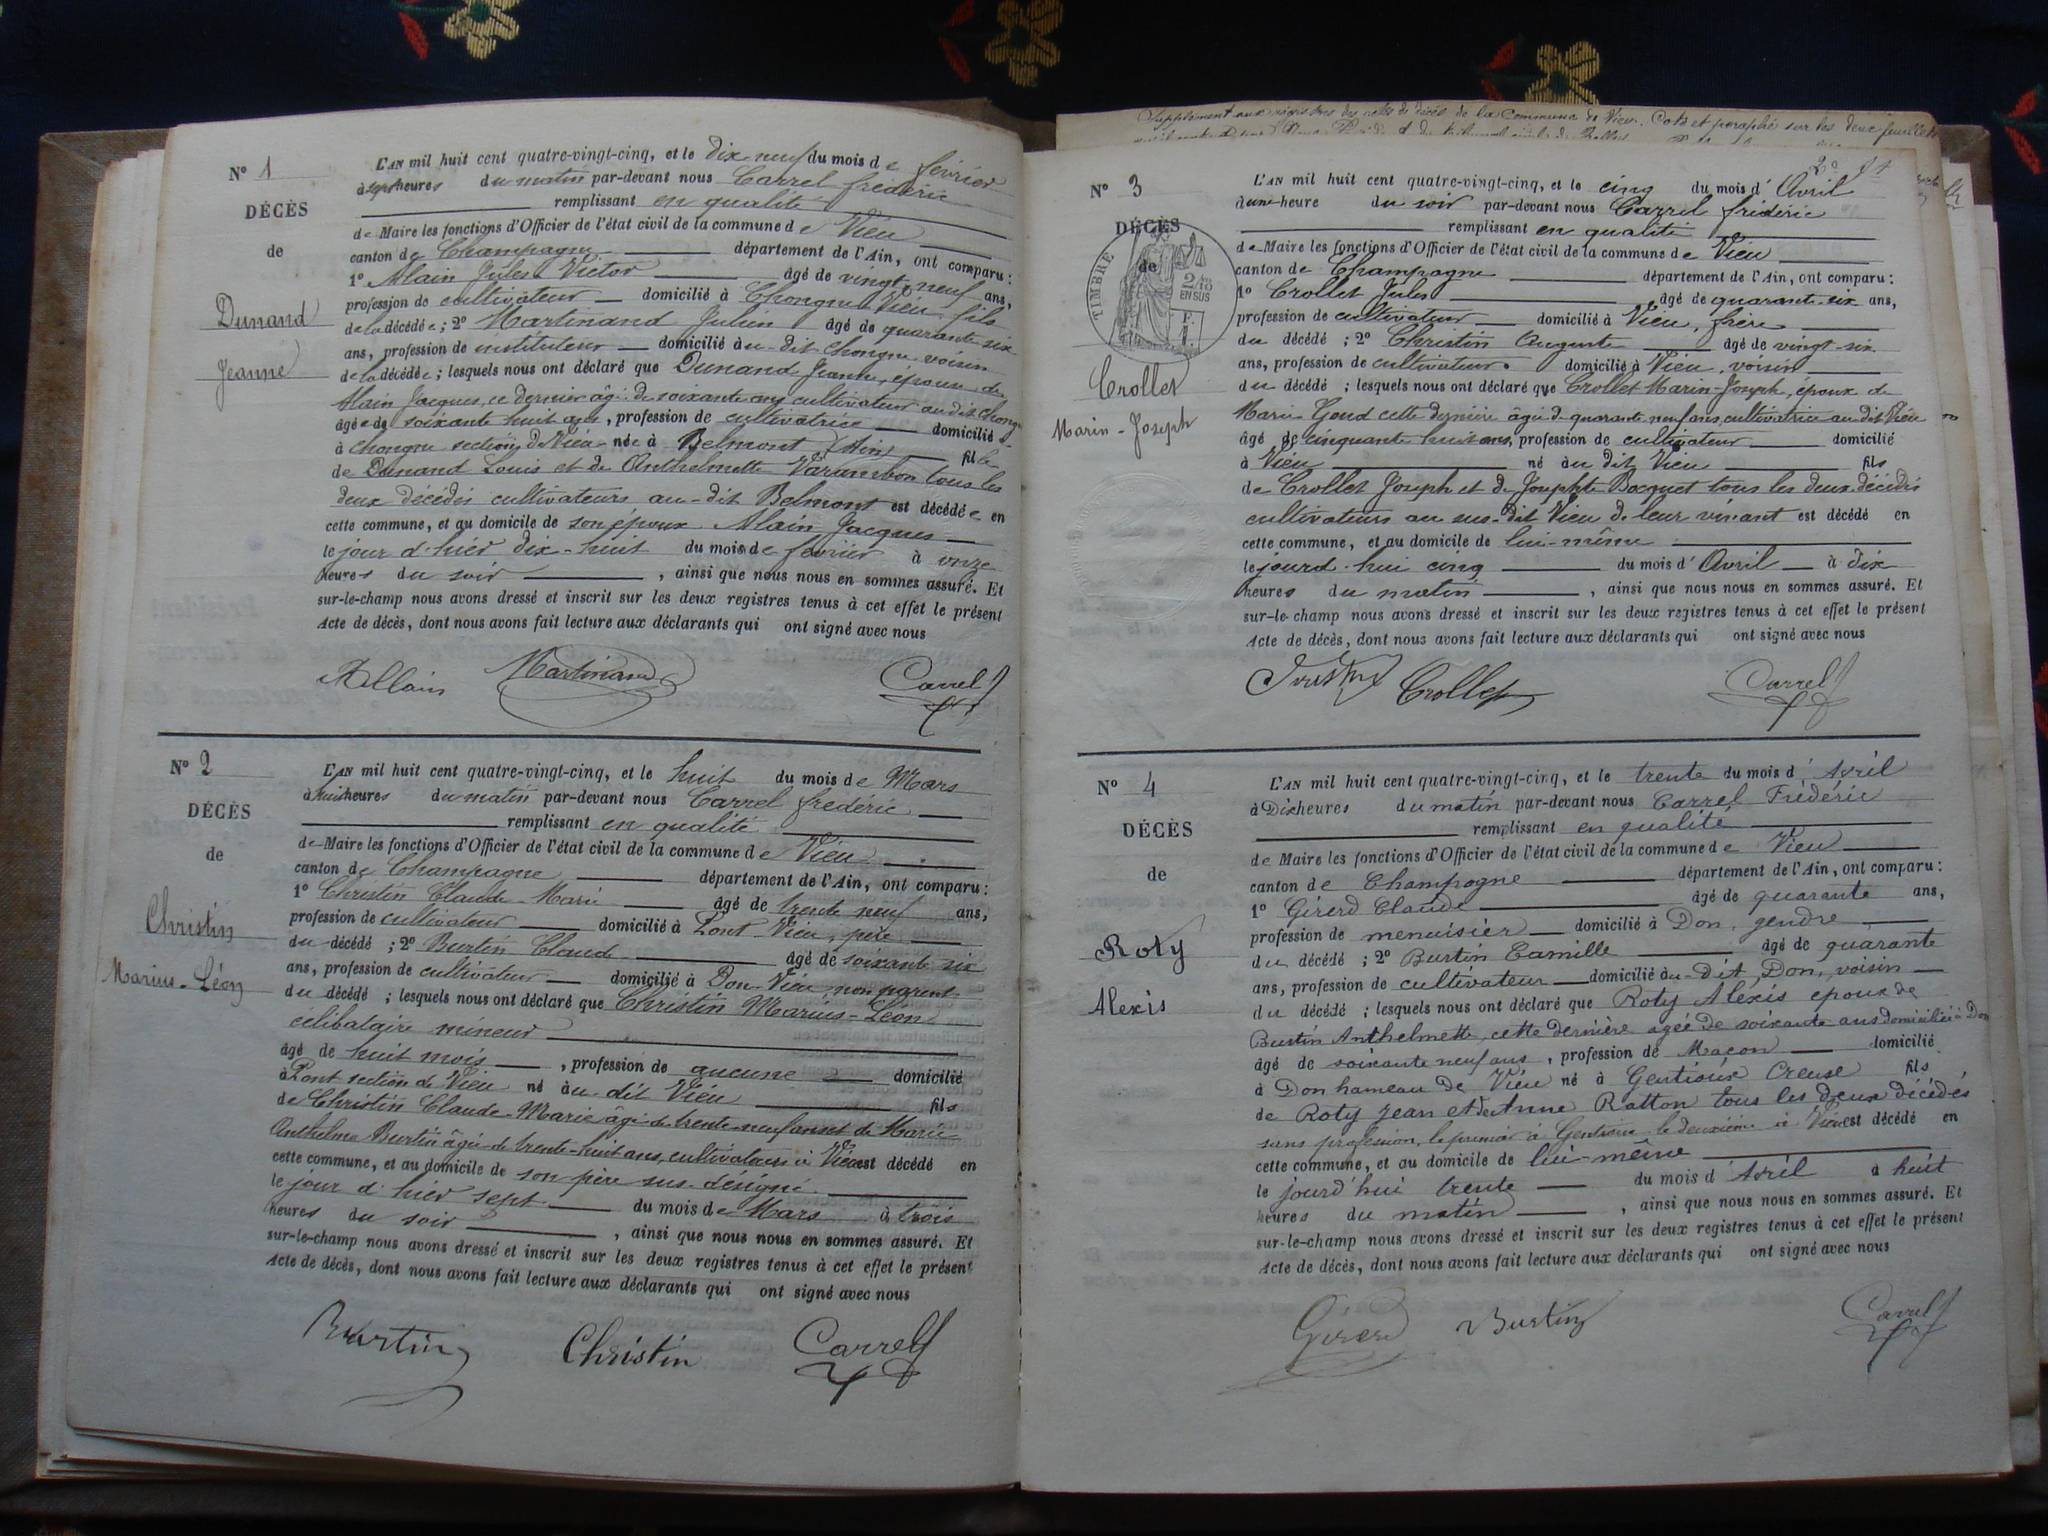 N° 1
DÉCÈS
de
Dunand
Jeanne
L'AN mil huit cent quatre-vingt-cinq, et le dix neuf du mois de février
à sept heures du matin par-devant nous Carrel frédéric
remplissant en qualité
de Maire les fonctions d'Officier de l'état civil de la commune de Vieu
canton de Champagne département de l'Ain, ont comparu :
1° Alain Jules Victor âgé de vingt neuf ans,
profession de cultivateur domicilié à Chongne Vieu, fils
de la décédée ; 2° Martinand Julien âgé de quarante six
ans, profession de instituteur domicilié au-dit Chongne voisin
de la décédée ; lesquels nous ont déclaré que Dunand Jeanne, épouse de
Alain Jacques, ce dernier âgé de soixante ans cultivateur au dit Chongne
âgée de soixante huit ans, profession de cultivatrice domicilié
à Chongne section de Vieu née à Belmont (Ain) fille
de Dunand Louis et de Anthelmette Varambon tous les
deux décédés cultivateurs au-dit Belmont est décédée en
cette commune, et au domicile de son époux Alain Jacques
le jour d'hier dix-huit du mois de février à onze
heures du soir , ainsi que nous nous en sommes assuré. Et
sur-le-champ nous avons dressé et inscrit sur les deux registres tenus à cet effet le présent
Acte de décès, dont nous avons fait lecture aux déclarants qui ont signé avec nous
Allain Martinand Carrel
N° 2
DÉCÈS
de
Christin
Marius-Léon
L'AN mil huit cent quatre-vingt-cinq, et le huit du mois de Mars
à huit heures du matin par-devant nous Carrel frédéric
remplissant en qualité
de Maire les fonctions d'Officier de l'état civil de la commune de Vieu
canton de Champagne département de l'Ain, ont comparu :
1° Christin Claude-Marie âgé de trente neuf ans,
profession de cultivateur domicilié à Pont Vieu, père
du décédé ; 2° Burtin Claude âgé de soixante six
ans, profession de cultivateur domicilié à Don Vieu, non parent
du décédé ; lesquels nous ont déclaré que Christin Marius-Léon
célibataire mineur
âgé de huit mois , profession de aucune domicilié
à Pont section de Vieu né au dit Vieu fils
de Christin Claude-Marie âgé de trente neuf ans et de Marie
Anthelme Burtin âgée de trente-huit ans, cultivateurs à Vieu est décédé en
cette commune, et au domicile de son père sus-désigné
le jour d'hier sept du mois de Mars à trois
heures du soir , ainsi que nous nous en sommes assuré. Et
sur-le-champ nous avons dressé et inscrit sur les deux registres tenus à cet effet le présent
Acte de décès, dont nous avons fait lecture aux déclarants qui ont signé avec nous
Burtin Christin Carrel
Supplément aux registres des actes de décès de la Commune de Vieu. Coté et paraphé sur les deux feuillets
N° 3
DÉCÈS
de
TIMBRE
2/10
EN SUS
Crollet
Marin-Joseph
L'AN mil huit cent quatre-vingt-cinq, et le cinq du mois d'Avril
à une heure du soir par-devant nous Carrel frédéric
remplissant en qualité
de Maire les fonctions d'Officier de l'état civil de la commune de Vieu
canton de Champagne département de l'Ain, ont comparu :
1° Crollet Jules âgé de quarante-six ans,
profession de cultivateur domicilié à Vieu, frère
du décédé ; 2° Christin Auguste âgé de vingt-six
ans, profession de cultivateur domicilié à Vieu, voisin
du décédé ; lesquels nous ont déclaré que Crollet Marin-Joseph, époux de
Marie Goud cette dernière âgée de quarante neuf ans, cultivatrice au dit Vieu
âgé de cinquante huit ans, profession de cultivateur domicilié
à Vieu né au dit Vieu fils
de Crollet Joseph et de Josephte Bocquet tous les deux décédés
cultivateurs au sus-dit Vieu de leur vivant est décédé en
cette commune, et au domicile de lui-même
le jourd'hui cinq du mois d'Avril à dix
heures du matin , ainsi que nous nous en sommes assuré. Et
sur-le-champ nous avons dressé et inscrit sur les deux registres tenus à cet effet le présent
Acte de décès, dont nous avons fait lecture aux déclarants qui ont signé avec nous
Crollet Carrel
N° 4
DÉCÈS
de
Roty
Alexis
L'AN mil huit cent quatre-vingt-cinq, et le trente du mois d'Avril
à Dix heures du matin par-devant nous Carrel Frédéric
remplissant en qualité
de Maire les fonctions d'Officier de l'état civil de la commune de Vieu
canton de Champagne département de l'Ain, ont comparu :
1° Gérerd Claude âgé de quarante ans,
profession de menuisier domicilié à Don, gendre
du décédé ; 2° Burtin Camille âgé de quarante
ans, profession de cultivateur domicilié au-dit Don, voisin
du décédé ; lesquels nous ont déclaré que Roty Aléxis époux de
Burtin Anthelmette, cette dernière agée de soixante ans domiciliée à Don
âgé de soixante neuf ans , profession de Maçon domicilié
à Don hameau de Vieu né à Gentioux Creuse fils
de Roty Jean et de Anne Ratton tous les deux décédés
sans profession, le premier à Gentioux le deuxième à Vieu est décédé en
cette commune, et au domicile de lui-même
le jourd'hui trente du mois d'Avril à huit
heures du matin , ainsi que nous nous en sommes assuré. Et
sur-le-champ nous avons dressé et inscrit sur les deux registres tenus à cet effet le présent
Acte de décès, dont nous avons fait lecture aux déclarants qui ont signé avec nous
Gérerd Burtin Carrel